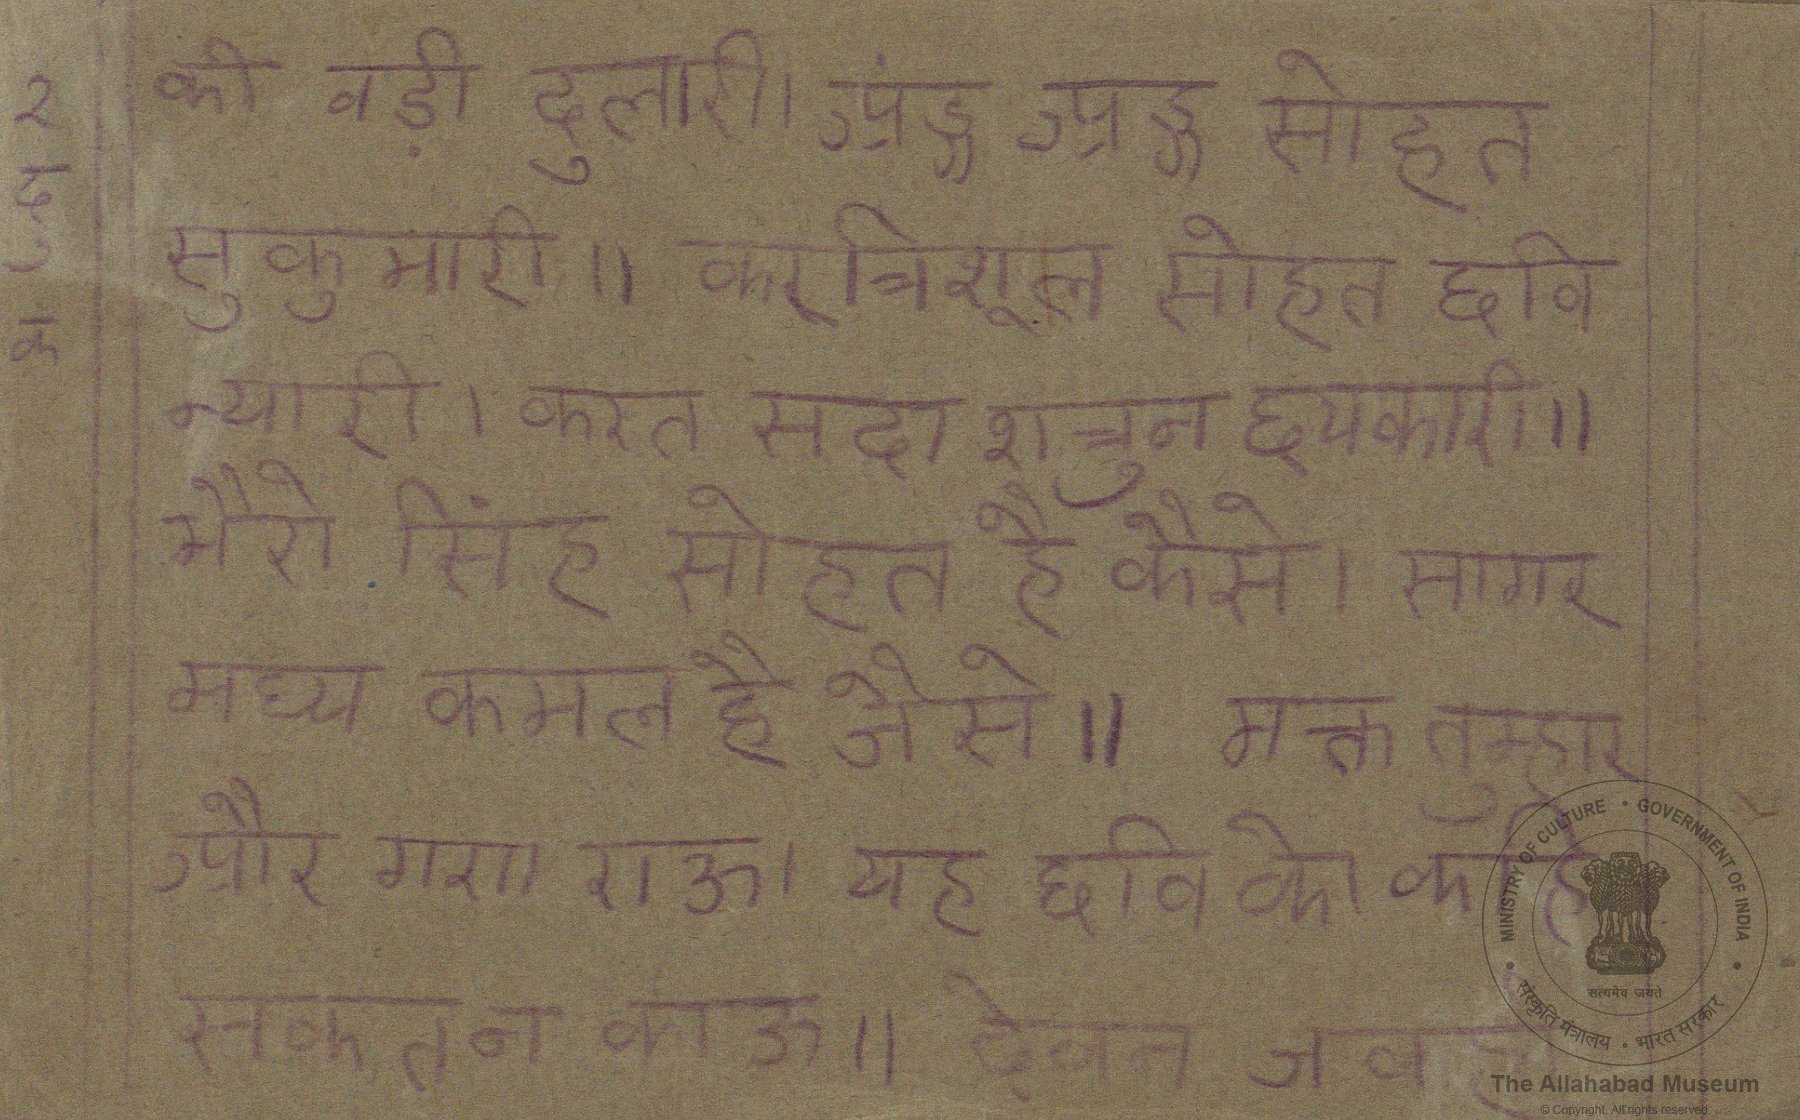 की वड़ी दुलारी। अंङ्ग अङ्ग सोहत
सुकुमारी॥ कर त्रिशूल सोहत छवि
न्यारी। करत सदा शत्रुन छयकारी॥
भैरो सिंह सोहत है कैसे। सागर
मध्य कमल है जैसे॥ भक्त तुम्हार
और गरा राऊ। यह छवि को कहि
सकत न काऊ॥ देवन जव
२
दु
क
MINISTRY OF CULTURE • GOVERNMENT OF INDIA
सत्यमेव जयते
संस्कृति मंत्रालय • भारत सरकार
The Allahabad Museum
© Copyright, All rights reserved.